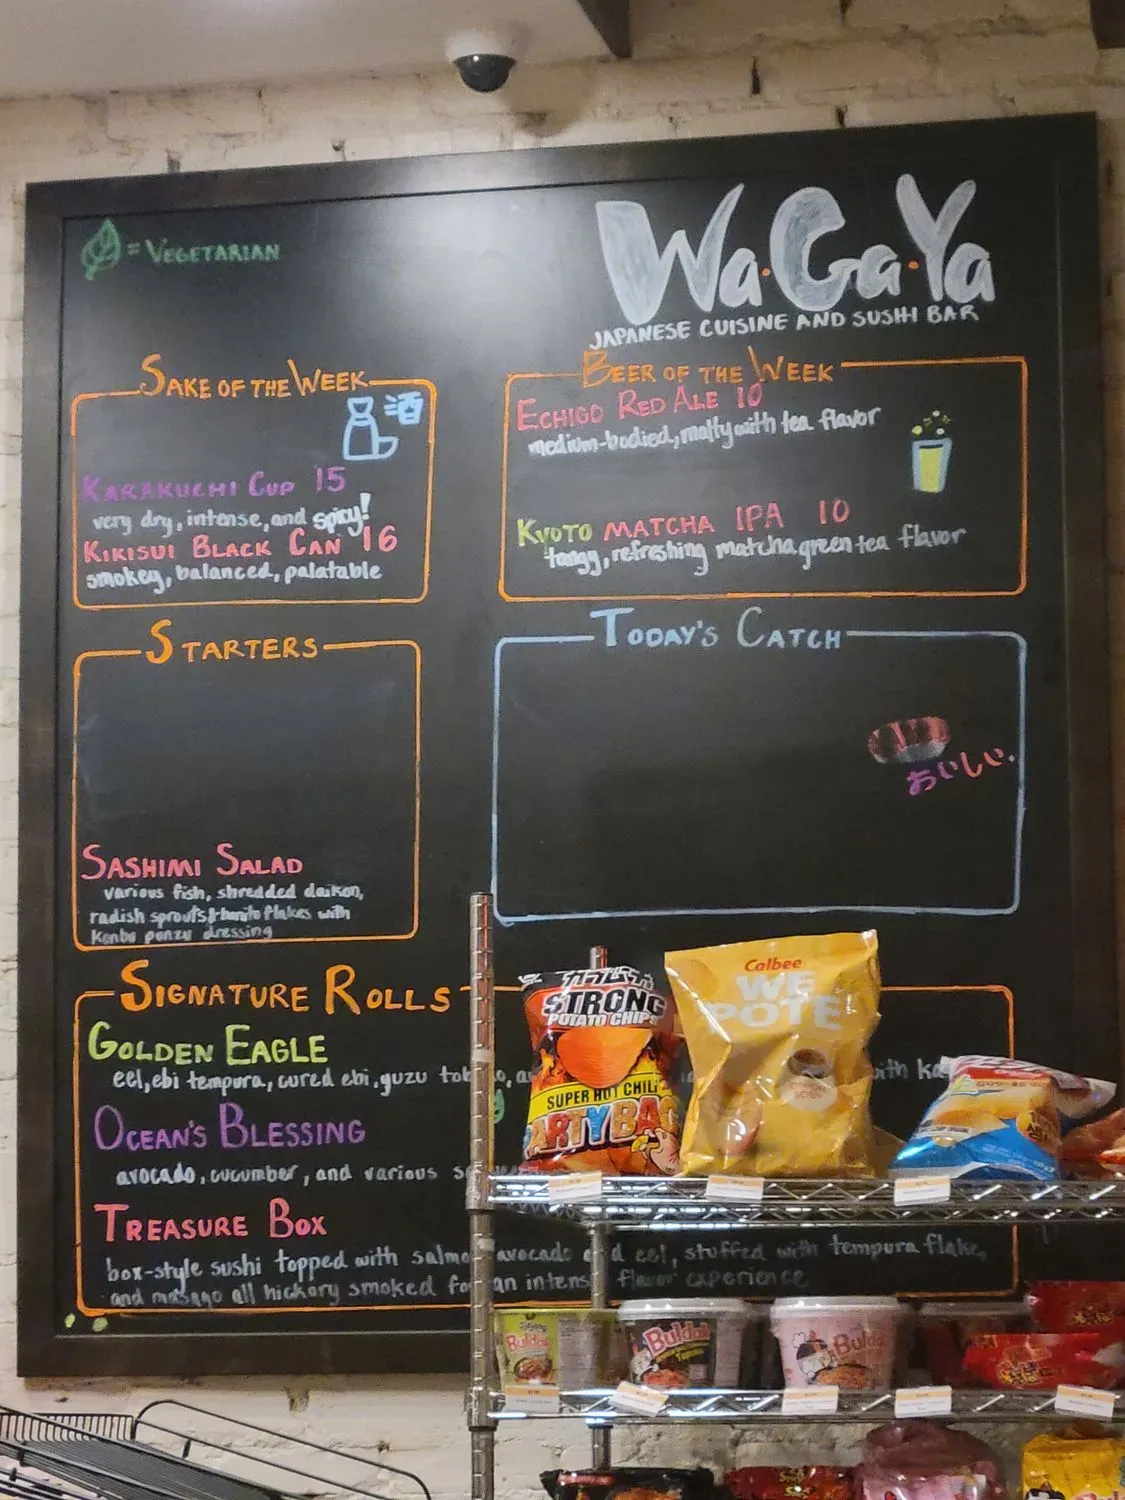 = VEGETARIAN
WA·GA·YA
JAPANESE CUISINE AND SUSHI BAR
SAKE OF THE WEEK
酒
KARAKUCHI CUP 15
very dry, intense, and spicy!
KIKISUI BLACK CAN 16
smokey, balanced, palatable
BEER OF THE WEEK
ECHIGO RED ALE 10
medium-bodied, malty with tea flavor
KYOTO MATCHA IPA 10
tangy, refreshing matcha green tea flavor
STARTERS
SASHIMI SALAD
various fish, shredded daikon,
radish sprouts & bonito flakes with
konbu ponzu dressing
TODAY'S CATCH
おいしい.
SIGNATURE ROLLS
GOLDEN EAGLE
eel, ebi tempura, cured ebi, yuzu with
OCEAN'S BLESSING
avocado, cucumber, and various
TREASURE BOX
box-style sushi topped with salmo avocado d eel, stuffed with tempura flake,
and masago all hickory smoked for an intens flavor experience
カラムーチョ
STRONG
POTATO CHIPS
SUPER HOT CHILI
PARTY BAG
Calbee
WE
POTE
Buldak
Buldak
Buldak